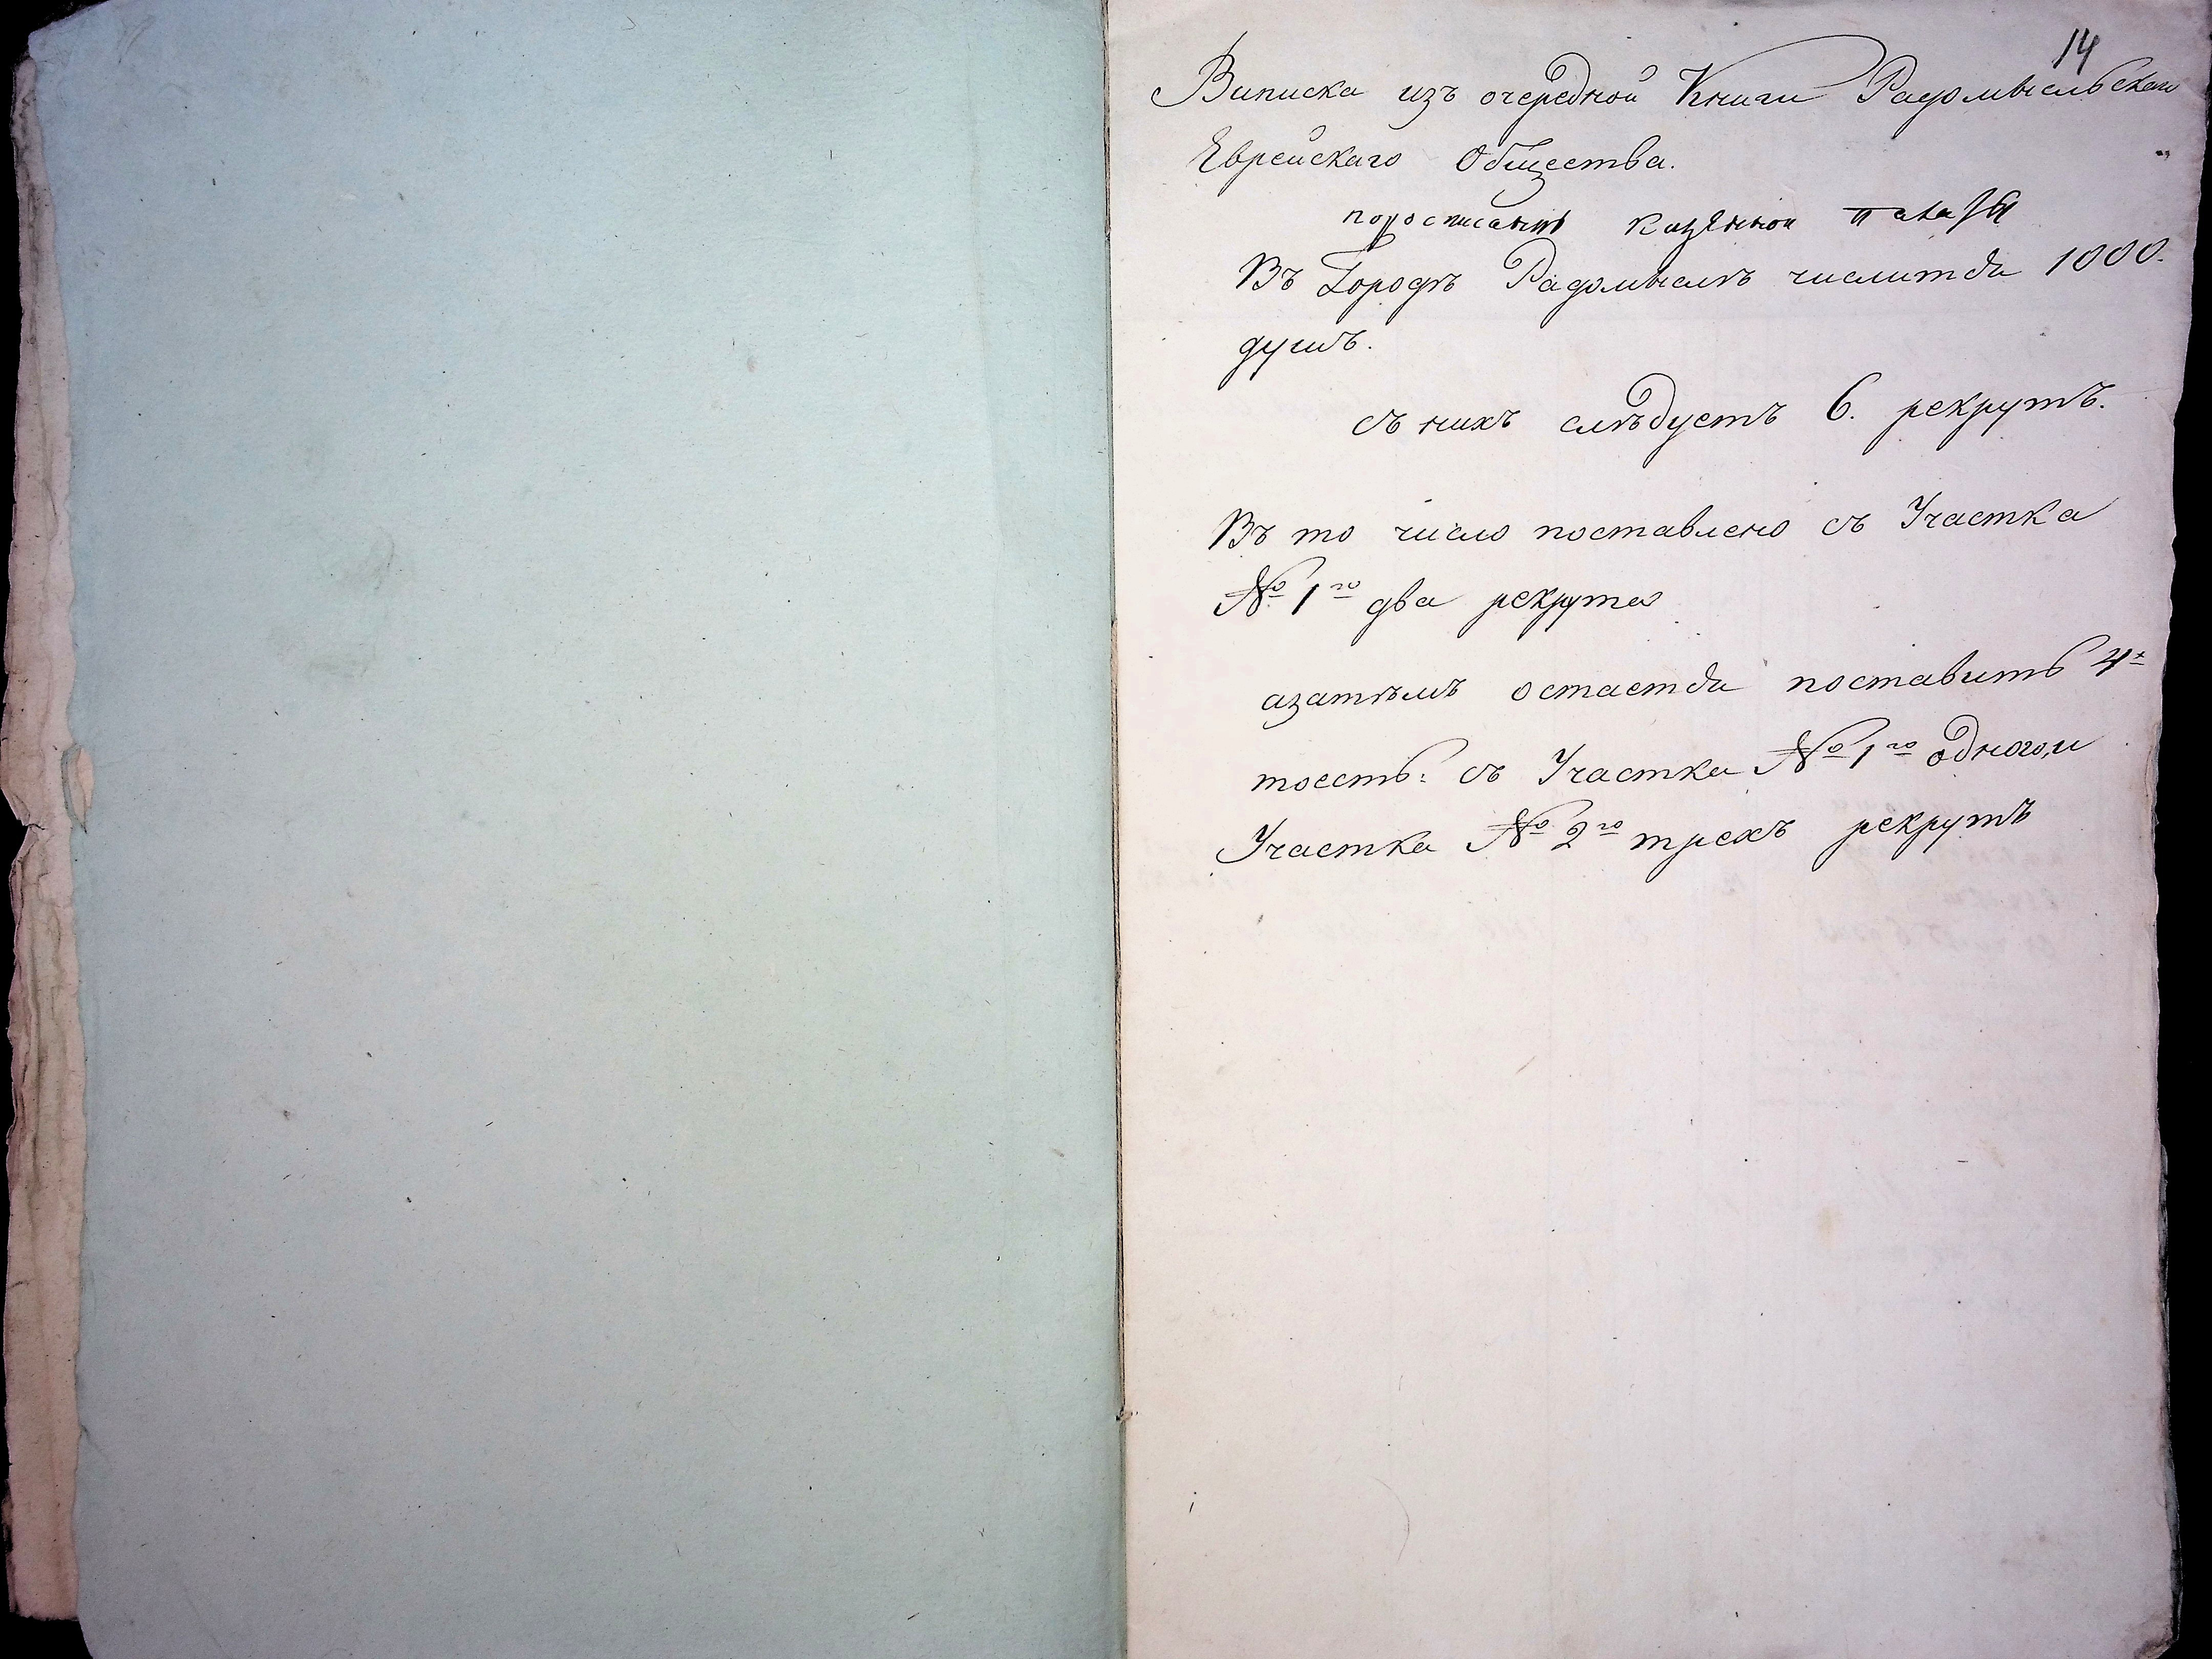 14
Виписка изъ очередной Книги Радомысльскаго
Еврейскаго Общества.
поросписанію Казенной палаты
Въ Городѣ Радомыслѣ числится 1000.
душъ.
съ нихъ слѣдуетъ 6. рекрутъ.
Въ то число поставлено съ Участка
№ 1го два рекрута
азатѣмъ остается поставить 4х
тоесть: съ Участка № 1го одного, и
Участка № 2го трехъ рекрутъ